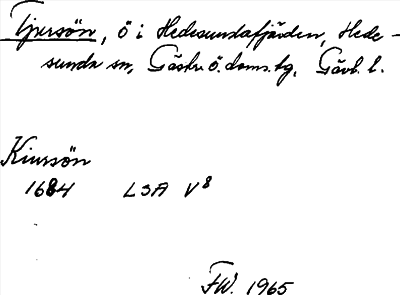 Tjursön, ö i Hedesundafjärden, Hede-
sunda sn, Gästr. ö. doms. tg, Gävl. l.
Kiursön
1684 LSA V8
FW. 1965